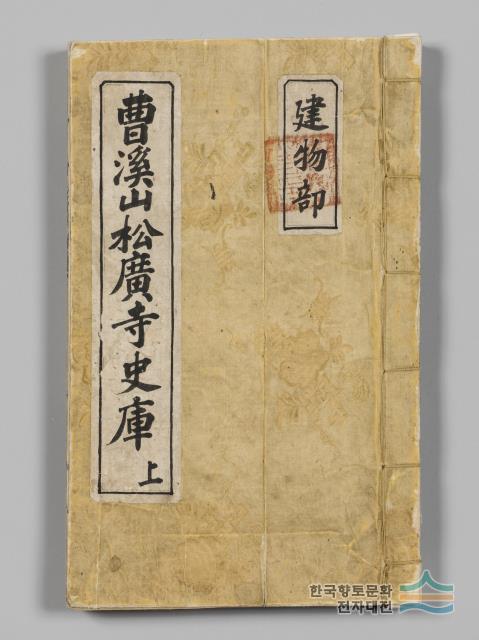 建物部
曹溪山松廣寺史庫 上
한국향토문화
전자대전